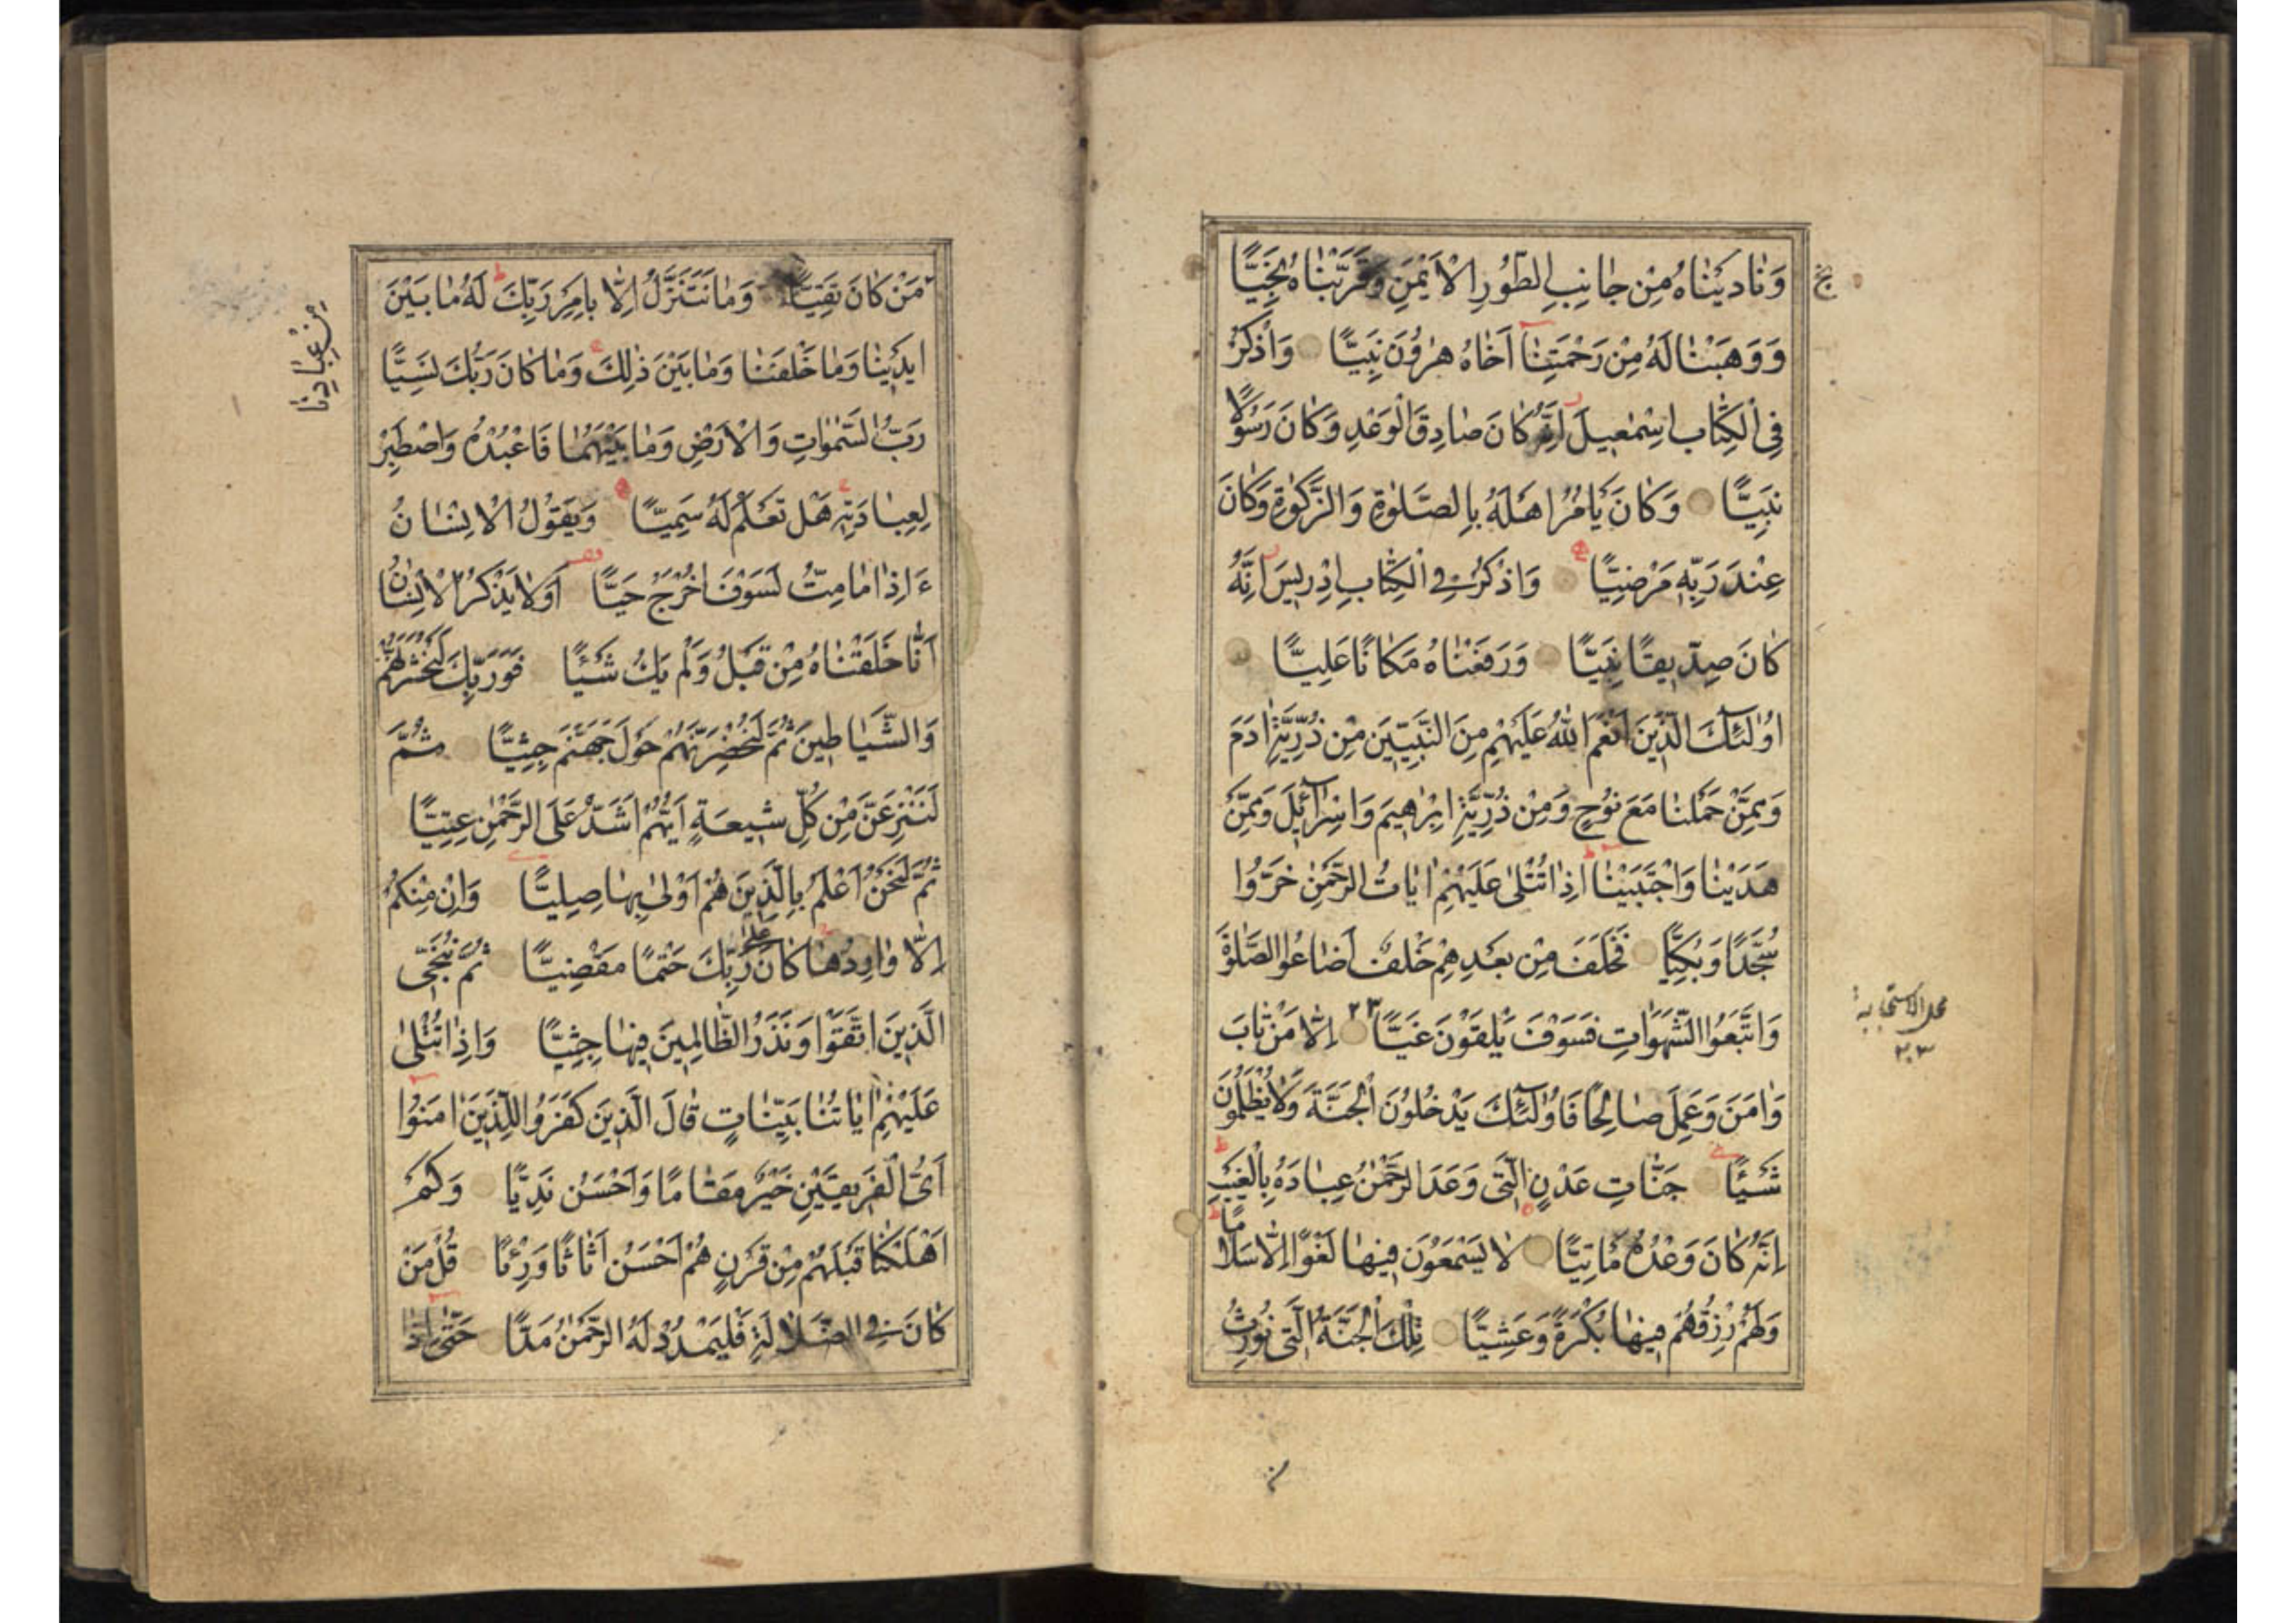 وَنَادَيْنَاهُ مِنْ جَانِبِ الطُّورِ الْاَيْمَنِ وَقَرَّبْنَاهُ نَجِيًّا
وَوَهَبْنَا لَهُ مِنْ رَحْمَتِنَا اَخَاهُ هٰرُونَ نَبِيًّا وَاذْكُرْ
فِى الْكِتَابِ اِسْمٰعِيلَ اِنَّهُ كَانَ صَادِقَ الْوَعْدِ وَكَانَ رَسُولًا
نَبِيًّا وَكَانَ يَاْمُرُ اَهْلَهُ بِالصَّلٰوةِ وَالزَّكٰوةِ وَكَانَ
عِنْدَ رَبِّهِ مَرْضِيًّا وَاذْكُرْ فِى الْكِتَابِ اِدْرِيسَ اِنَّهُ
كَانَ صِدِّيقًا نَبِيًّا وَرَفَعْنَاهُ مَكَانًا عَلِيًّا
اُولٰٓئِكَ الَّذِينَ اَنْعَمَ اللّٰهُ عَلَيْهِمْ مِنَ النَّبِيِّينَ مِنْ ذُرِّيَّةِ اٰدَمَ
وَمِمَّنْ حَمَلْنَا مَعَ نُوحٍ وَمِنْ ذُرِّيَّةِ اِبْرٰهِيمَ وَاِسْرَآئِيلَ وَمِمَّنْ
هَدَيْنَا وَاجْتَبَيْنَا اِذَا تُتْلٰى عَلَيْهِمْ اٰيَاتُ الرَّحْمٰنِ خَرُّوا
سُجَّدًا وَبُكِيًّا فَخَلَفَ مِنْ بَعْدِهِمْ خَلْفٌ اَضَاعُوا الصَّلٰوةَ
وَاتَّبَعُوا الشَّهَوَاتِ فَسَوْفَ يَلْقَوْنَ غَيًّا ٢٣ اِلَّا مَنْ تَابَ
وَاٰمَنَ وَعَمِلَ صَالِحًا فَاُولٰٓئِكَ يَدْخُلُونَ الْجَنَّةَ وَلَا يُظْلَمُونَ
شَيْئًا جَنَّاتِ عَدْنٍ الَّتِى وَعَدَ الرَّحْمٰنُ عِبَادَهُ بِالْغَيْبِ
اِنَّهُ كَانَ وَعْدُهُ مَاْتِيًّا لَا يَسْمَعُونَ فِيهَا لَغْوًا اِلَّا سَلَامًا
وَلَهُمْ رِزْقُهُمْ فِيهَا بُكْرَةً وَعَشِيًّا تِلْكَ الْجَنَّةُ الَّتِى نُورِثُ
مِنْ عِبَادِنَا
مَنْ كَانَ تَقِيًّا وَمَا نَتَنَزَّلُ اِلَّا بِاَمْرِ رَبِّكَ لَهُ مَا بَيْنَ
اَيْدِينَا وَمَا خَلْفَنَا وَمَا بَيْنَ ذٰلِكَ وَمَا كَانَ رَبُّكَ نَسِيًّا
رَبُّ السَّمٰوَاتِ وَالْاَرْضِ وَمَا بَيْنَهُمَا فَاعْبُدْهُ وَاصْطَبِرْ
لِعِبَادَتِهِ هَلْ تَعْلَمُ لَهُ سَمِيًّا وَيَقُولُ الْاِنْسَانُ
ءَاِذَا مَا مِتُّ لَسَوْفَ اُخْرَجُ حَيًّا اَوَلَا يَذْكُرُ الْاِنْسَانُ
اَنَّا خَلَقْنَاهُ مِنْ قَبْلُ وَلَمْ يَكُ شَيْئًا فَوَرَبِّكَ لَنَحْشُرَنَّهُمْ
وَالشَّيَاطِينَ ثُمَّ لَنُحْضِرَنَّهُمْ حَوْلَ جَهَنَّمَ جِثِيًّا ثُمَّ
لَنَنْزِعَنَّ مِنْ كُلِّ شِيعَةٍ اَيُّهُمْ اَشَدُّ عَلَى الرَّحْمٰنِ عِتِيًّا
ثُمَّ لَنَحْنُ اَعْلَمُ بِالَّذِينَ هُمْ اَوْلٰى بِهَا صِلِيًّا وَاِنْ مِنْكُمْ
اِلَّا وَارِدُهَا كَانَ عَلٰى رَبِّكَ حَتْمًا مَقْضِيًّا ثُمَّ نُنَجِّى
الَّذِينَ اتَّقَوْا وَنَذَرُ الظَّالِمِينَ فِيهَا جِثِيًّا وَاِذَا تُتْلٰى
عَلَيْهِمْ اٰيَاتُنَا بَيِّنَاتٍ قَالَ الَّذِينَ كَفَرُوا لِلَّذِينَ اٰمَنُوا
اَىُّ الْفَرِيقَيْنِ خَيْرٌ مَقَامًا وَاَحْسَنُ نَدِيًّا وَكَمْ
اَهْلَكْنَا قَبْلَهُمْ مِنْ قَرْنٍ هُمْ اَحْسَنُ اَثَاثًا وَرِءْيًا قُلْ مَنْ
كَانَ فِى الضَّلَالَةِ فَلْيَمْدُدْ لَهُ الرَّحْمٰنُ مَدًّا حَتّٰى اِذَا